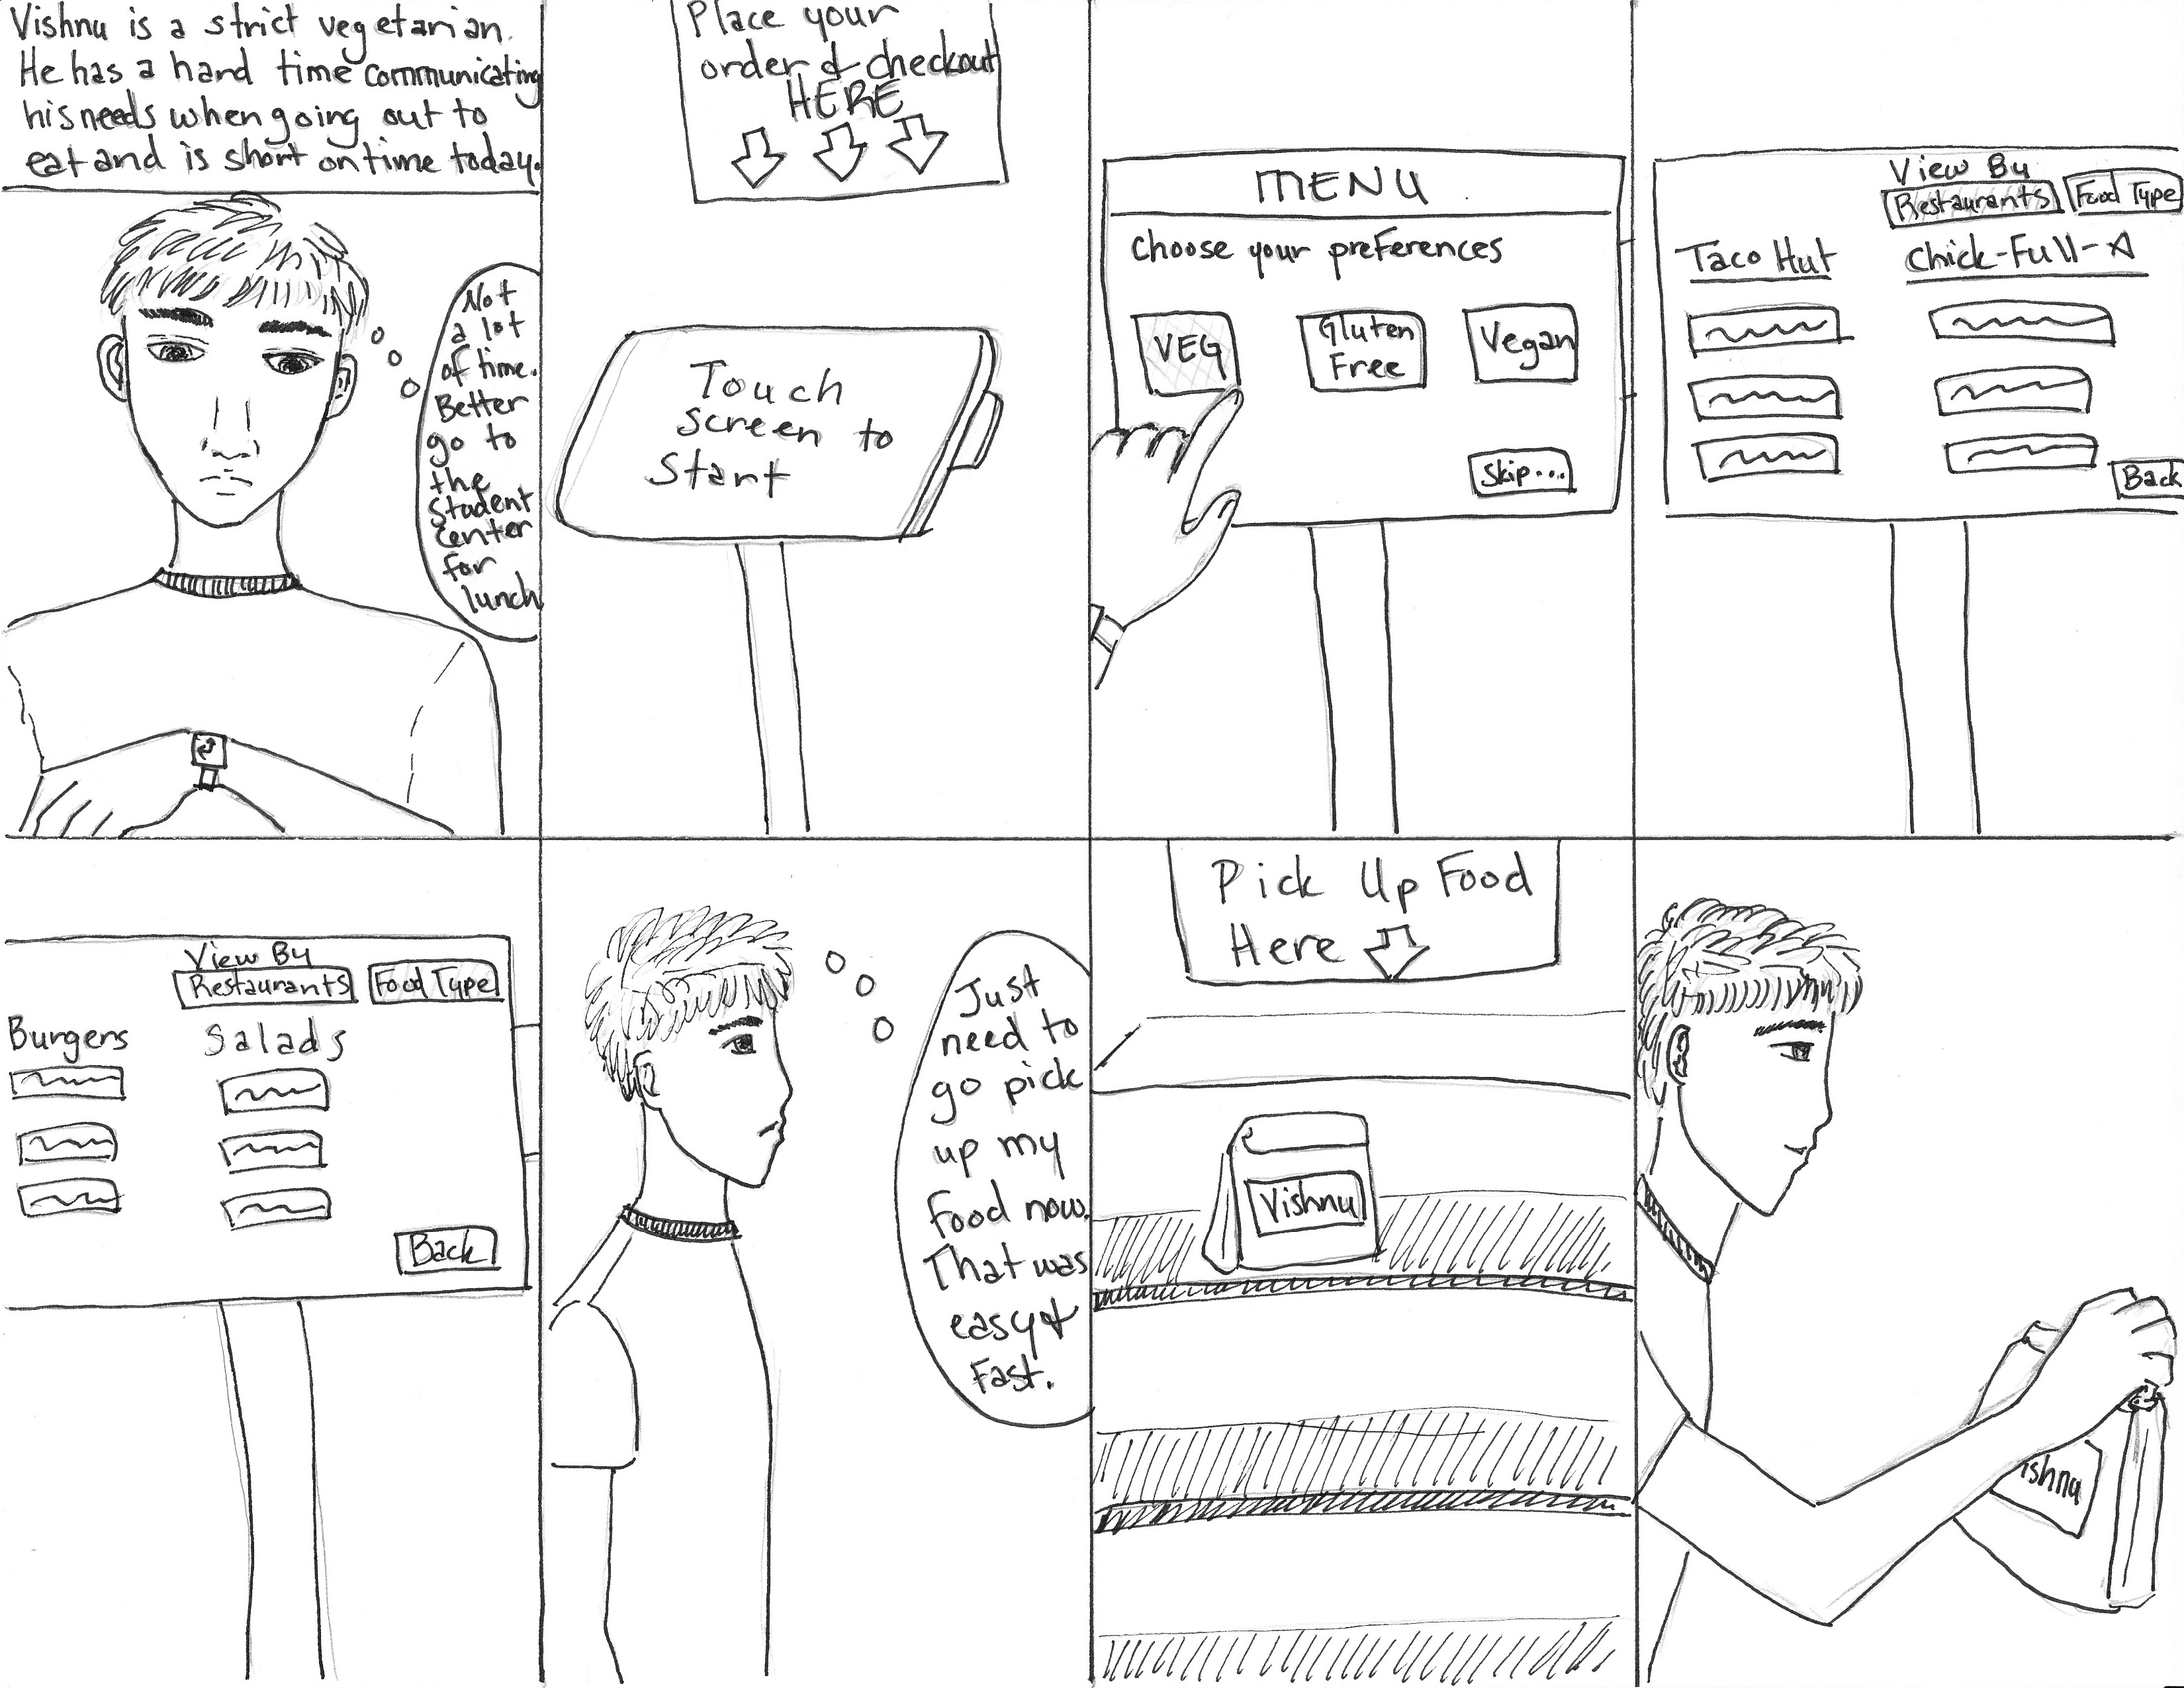 Vishnu is a strict vegetarian.
He has a hard time communicating
his needs when going out to
eat and is short on time today.
Not
a lot
of time.
Better
go to
the
student
center
for
lunch
Place your
order & checkout
HERE
Touch
screen to
Start
MENU
Choose your preferences
VEG
Gluten
Free
Vegan
Skip...
View By
Restaurants
Food Type
Taco Hut
Chick-Full-A
Back
View By
Restaurants
Food Type
Burgers
Salads
Back
Just
need to
go pick
up my
food now.
That was
easy &
fast.
Pick Up Food
Here
Vishnu
ishnu